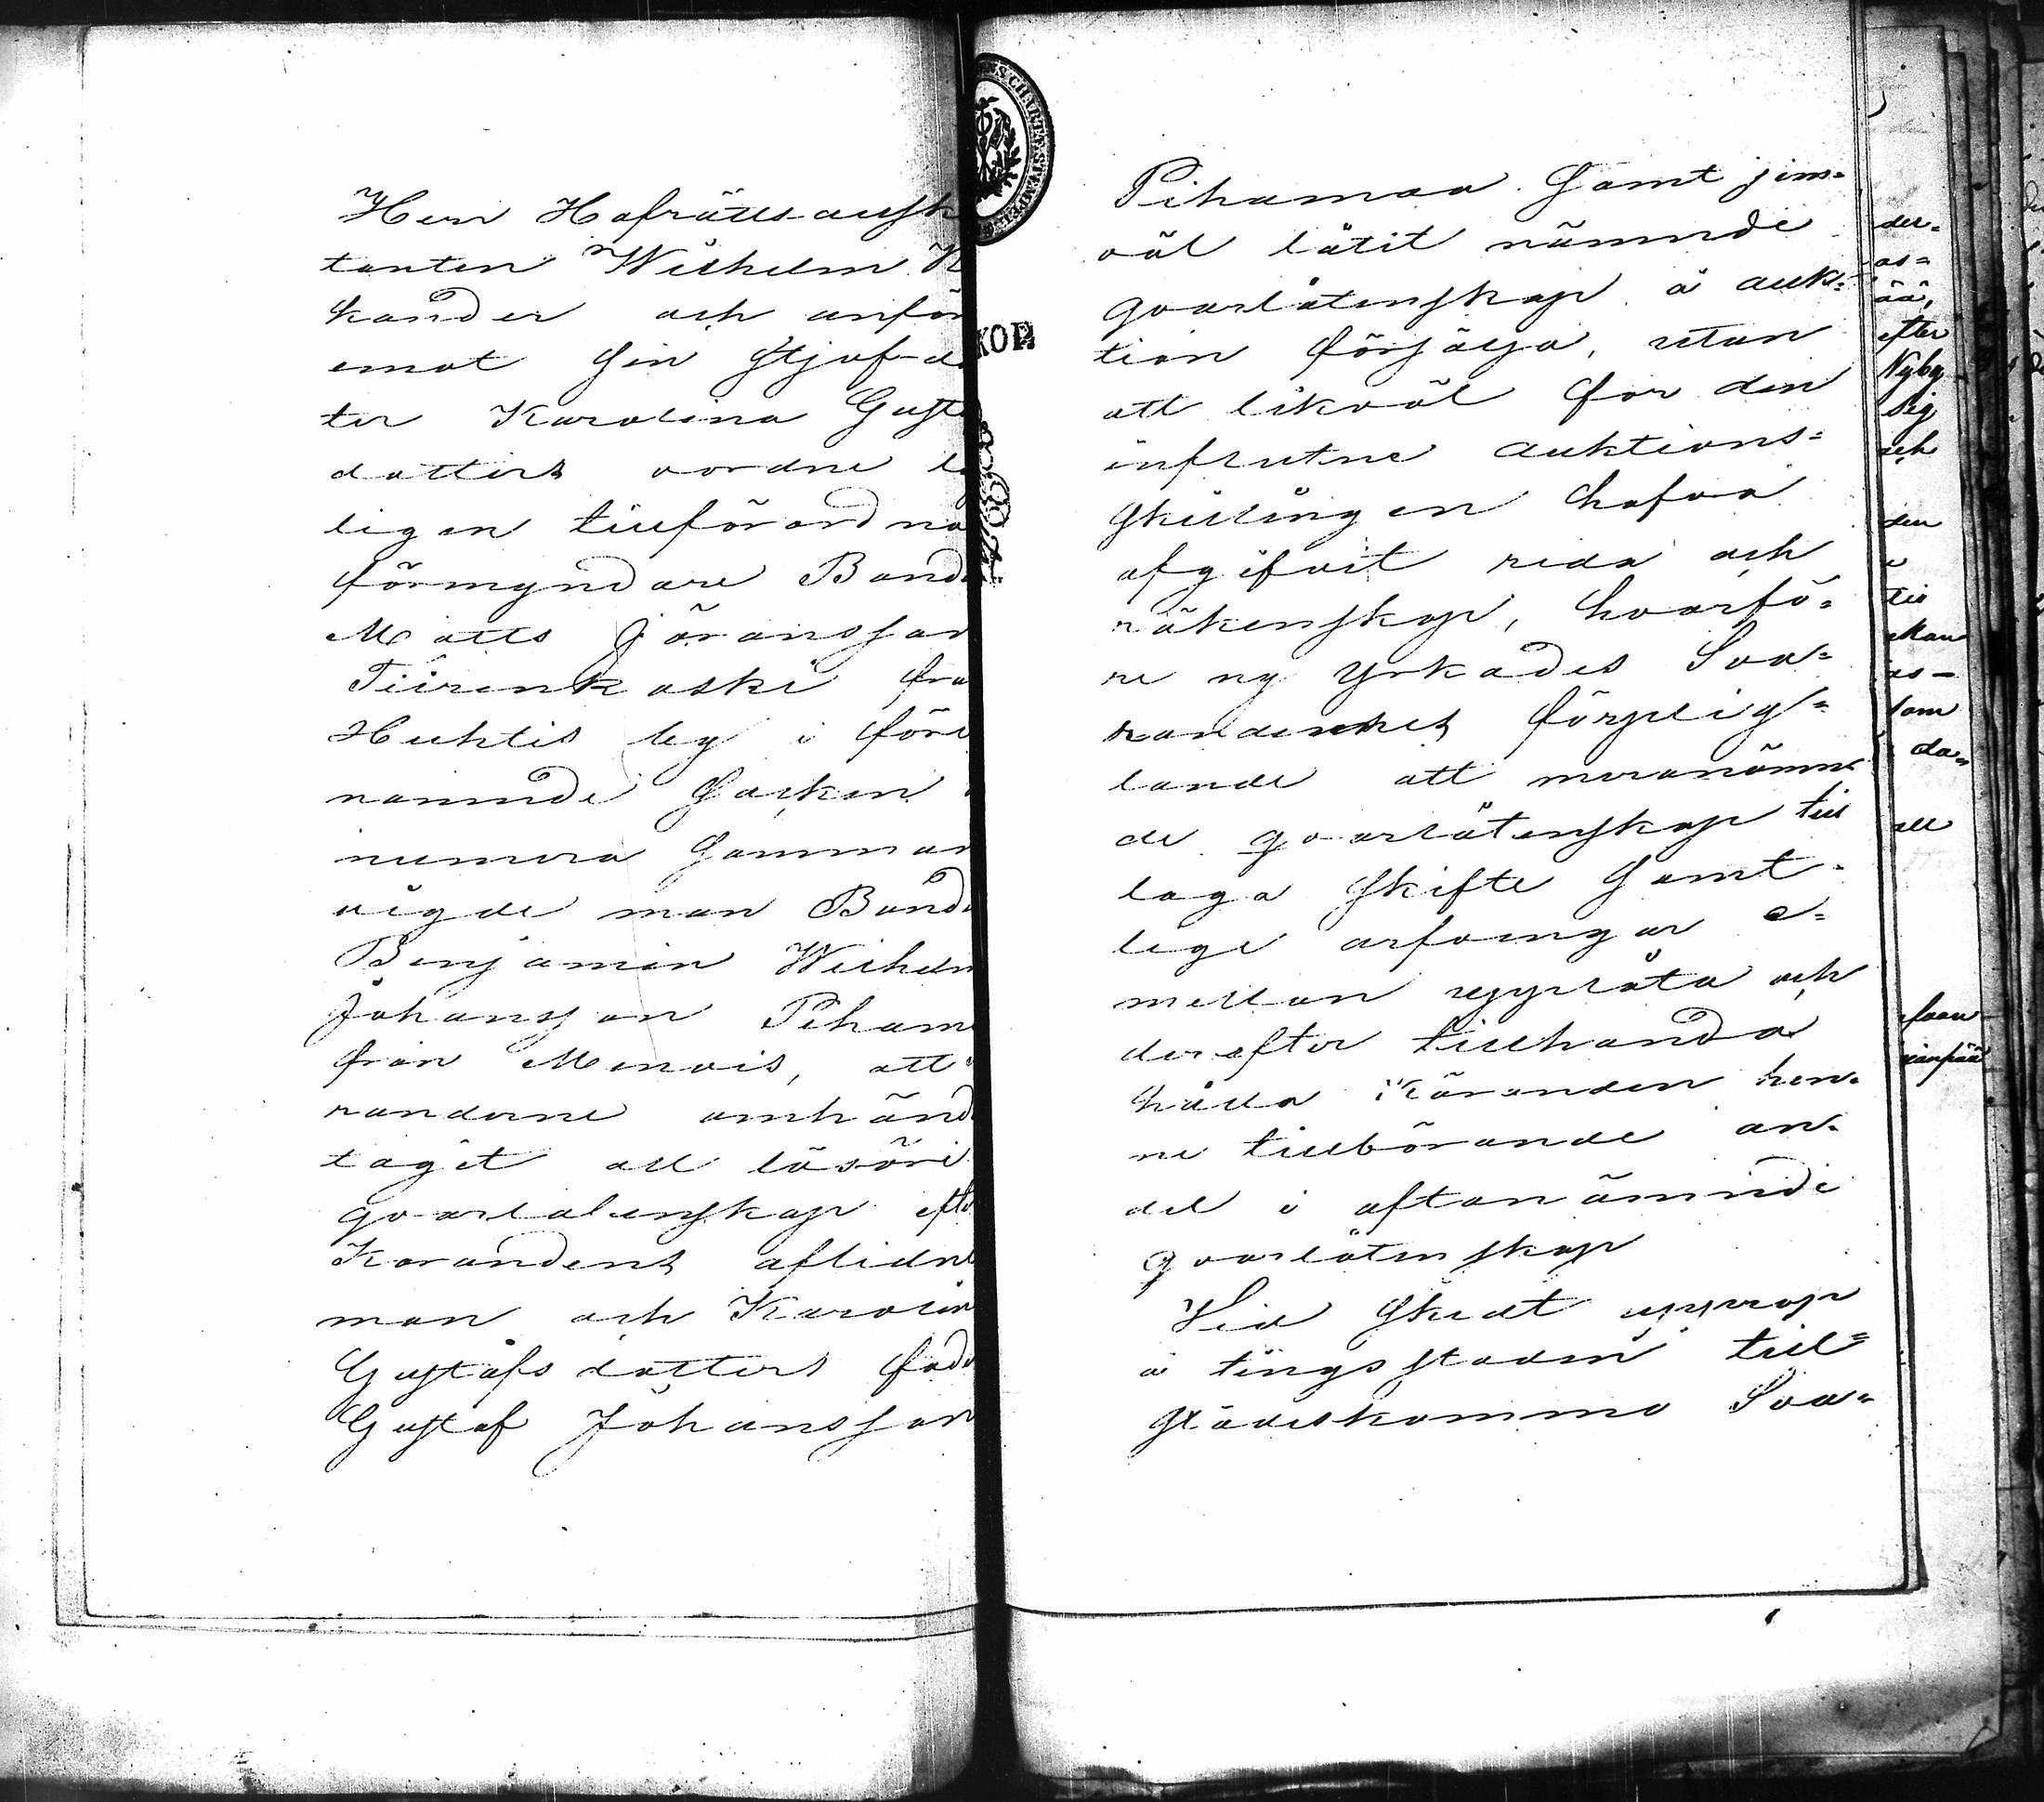 Herr Hofrätts ausk
tanten Wilhelm N
kander och anför
emot sin stjuf-d
ter Karolina Gust
dotters vordne l
ligen tillförordna
förmyndare Bond
Matts Jöransson
Tiirinkoski frå
Huhtis by i före
nämnde Socken
numera Samman
vigde man Bond
Benjamin Wilhelm
Johansson Pihama
från Menois, att
randerne omhänd
tagit all lösöre
qvarlatenskap efte
Kärandens aflidne
man och Karolin
Gustafs dotters fade
Gustaf Johansson
KOP.
Pihamaa Samt jem=
väl låtit nämnde
qvarlåtenskap å auk=
tion försälja, utan
att likväl för den
influtne auktions=
skillingen hafva
afgifvit reda och
räkenskap, hvarfö=
re ny yrkades Sva=
randernes förplig=
tande att meranämn
de qvarlåtenskap till
laga skifte Samt=
lige arfvingar e=
mellan upplåta och
derefter tillhanda
hålla Käranden hen=
ne tillhörande an=
del i oftanämnde
qvarlåtenskap
Vid skedt upprop
å tingsstaden till=
städeskommo Sva=
der=
as=
ää,
efter
Nyby
sig
och
den
till
som
da=
all